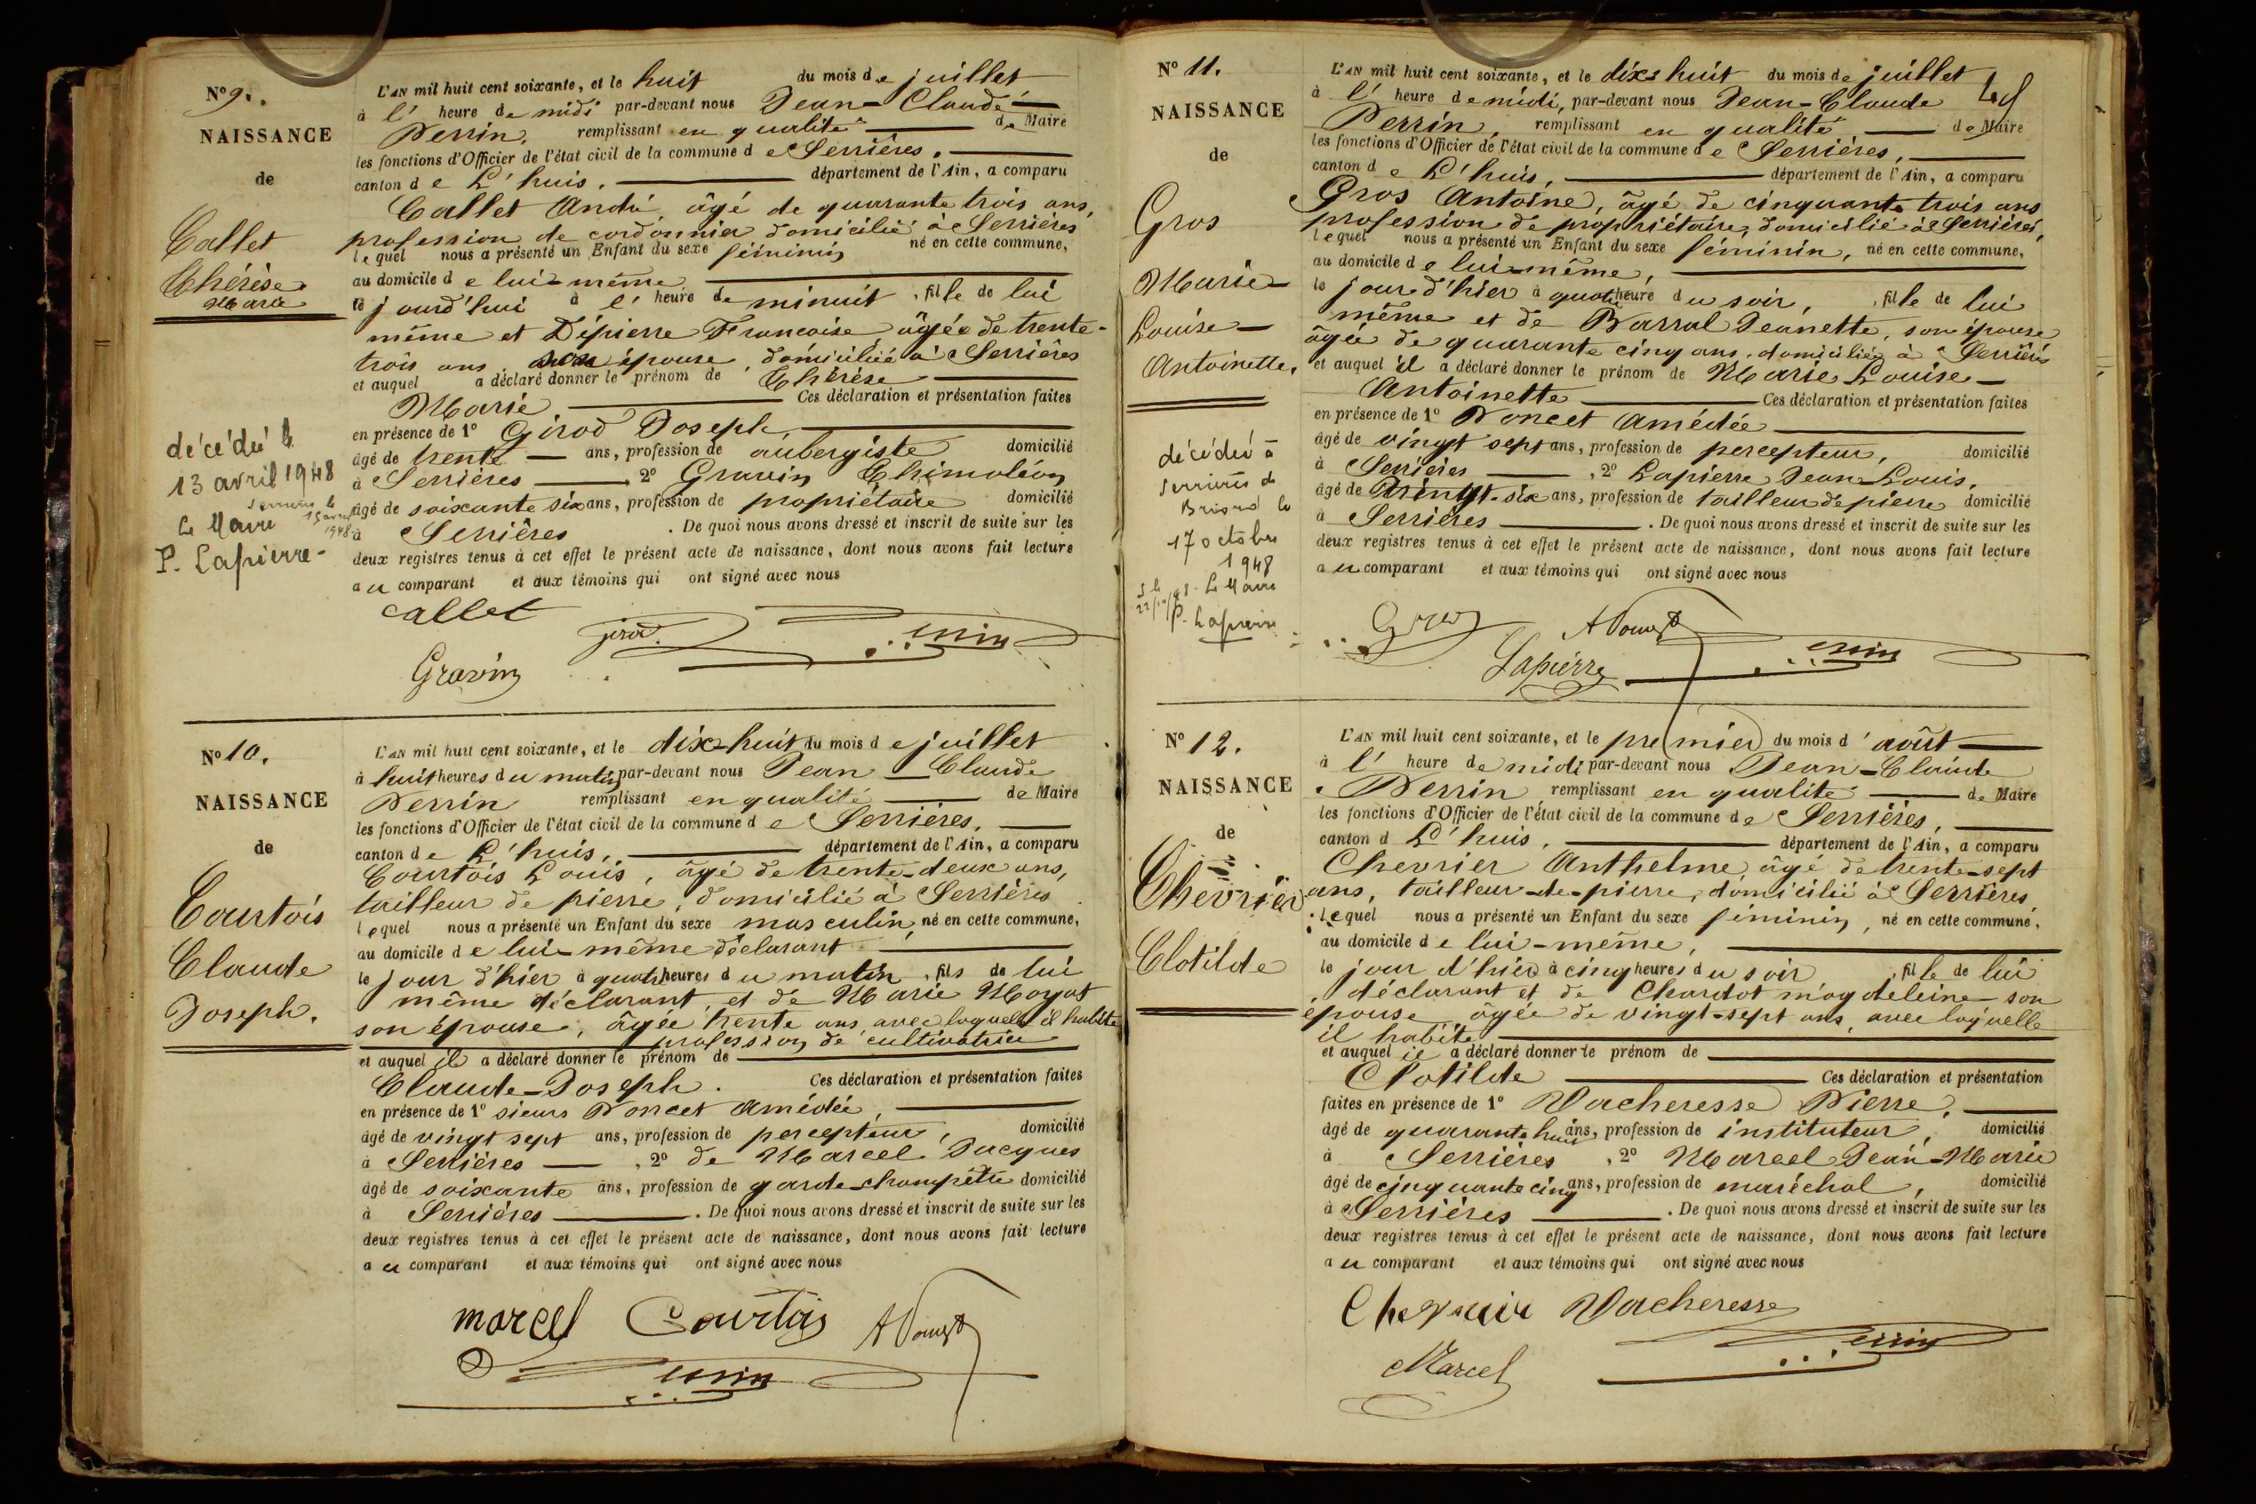 N° 9.
NAISSANCE
de
Callet
Thérèse
Marie
décédée le
13 avril 1948
Serrières le
15 avril
1948
Le Maire
P. Lapierre
L'AN mil huit cent soixante, et le huit du mois de juillet
à l' heure de midi par-devant nous Jean-Claude
Perrin, remplissant en qualité de Maire
les fonctions d'Officier de l'état civil de la commune de Serrières,
canton de L'huis, département de l'Ain, a comparu
Callet André, âgé de quarante trois ans,
profession de cordonnier domicilié à Serrières
lequel nous a présenté un Enfant du sexe féminin né en cette commune,
au domicile de lui-même
le jourd'hui à l' heure de minuit, fille de lui
même et Dépierre Francoise âgée de trente-
trois ans son épouse, domiciliée à Serrières
et auquel a déclaré donner le prénom de Thérèse
Marie Ces déclaration et présentation faites
en présence de 1° Girod Joseph,
âgé de trente ans, profession de aubergiste domicilié
à Serrières 2° Gravin Thimoléon
âgé de soixante six ans, profession de propriétaire domicilié
à Serrières. De quoi nous avons dressé et inscrit de suite sur les
deux registres tenus à cet effet le présent acte de naissance, dont nous avons fait lecture
au comparant et aux témoins qui ont signé avec nous
Callet
girod
Perrin
Gravin
N° 10.
NAISSANCE
de
Courtois
Claude
Joseph.
L'AN mil huit cent soixante, et le dix-huit du mois de juillet
à huit heures du matin par-devant nous Jean-Claude
Perrin remplissant en qualité de Maire
les fonctions d'Officier de l'état civil de la commune de Serrières,
canton de L'huis, département de l'Ain, a comparu
Courtois Louis, âgé de trente-deux ans,
tailleur de pierre, domicilié à Serrières
lequel nous a présenté un Enfant du sexe masculin, né en cette commune,
au domicile de lui-même déclarant
le jour d'hier à quatre heures du matin, fils de lui
même déclarant et de Marie Moyat
son épouse, âgée trente ans avec laquelle il habite
profession de cultivatrice
et auquel il a déclaré donner le prénom de
Claude-Joseph. Ces déclaration et présentation faites
en présence de 1° sieurs Poncet Amédée,
âgé de vingt sept ans, profession de percepteur, domicilié
à Serrières, 2° de Marcel Jacques
âgé de soixante ans, profession de garde-champêtre domicilié
à Serrières. De quoi nous avons dressé et inscrit de suite sur les
deux registres tenus à cet effet le présent acte de naissance, dont nous avons fait lecture
au comparant et aux témoins qui ont signé avec nous
marcel Courtois A Poncet
Perrin
N° 11.
NAISSANCE
de
Gros
Marie-
Louise-
Antoinette.
décédée à
Serrières de
Briord le
17 octobre
1948
Le Maire
P. Lapierre
L'AN mil huit cent soixante, et le dix-huit du mois de juillet
à l' heure de midi, par-devant nous Jean-Claude
Perrin, remplissant en qualité de Maire
les fonctions d'Officier de l'état civil de la commune de Serrières,
canton de L'huis, département de l'Ain, a comparu
Gros Antoine, âgé de cinquante trois ans
profession de propriétaire, domicilié à Serrières,
lequel nous a présenté un Enfant du sexe féminin, né en cette commune,
au domicile de lui-même,
le jour d'hier à quatre heure du soir, fille de lui
même et de Barral Jeanette, son épouse
âgée de quarante cinq ans, domiciliée à Serrières
et auquel il a déclaré donner le prénom de Marie Louise-
Antoinette Ces déclaration et présentation faites
en présence de 1° Poncet Amédée
âgé de vingt sept ans, profession de percepteur, domicilié
à Serrières, 2° Lapierre Jean-Louis,
âgé de vingt-six ans, profession de tailleur de pierre domicilié
à Serrières. De quoi nous avons dressé et inscrit de suite sur les
deux registres tenus à cet effet le présent acte de naissance, dont nous avons fait lecture
au comparant et aux témoins qui ont signé avec nous
Gros A Poncet
Lapierre Perrin
N° 12.
NAISSANCE
de
Chevrier
Clotilde
L'AN mil huit cent soixante, et le premier du mois d'août
à l' heure de midi par-devant nous Jean-Claude
Perrin remplissant en qualité de Maire
les fonctions d'Officier de l'état civil de la commune de Serrières,
canton d L'huis, département de l'Ain, a comparu
Chevrier Anthelme, âgé de trente-sept
ans, tailleur-de-pierre, domicilié à Serrières,
lequel nous a présenté un Enfant du sexe féminin, né en cette commune,
au domicile de lui-même,
le jour d'hier à cinq heures du soir, fille de lui
déclarant et de Chardot magdeleine son
épouse âgée de vingt-sept ans, avec laquelle
il habite
et auquel il a déclaré donner le prénom de
Clotilde Ces déclaration et présentation
faites en présence de 1° Vacheresse Pierre,
âgé de quarante huit ans, profession de instituteur, domicilié
à Serrières, 2° Marcel Jean-Marie
âgé de cinquante cinq ans, profession de maréchal, domicilié
à Serrières. De quoi nous avons dressé et inscrit de suite sur les
deux registres tenus à cet effet le présent acte de naissance, dont nous avons fait lecture
au comparant et aux témoins qui ont signé avec nous
Chevrier Vacheresse
Perrin
Marcel